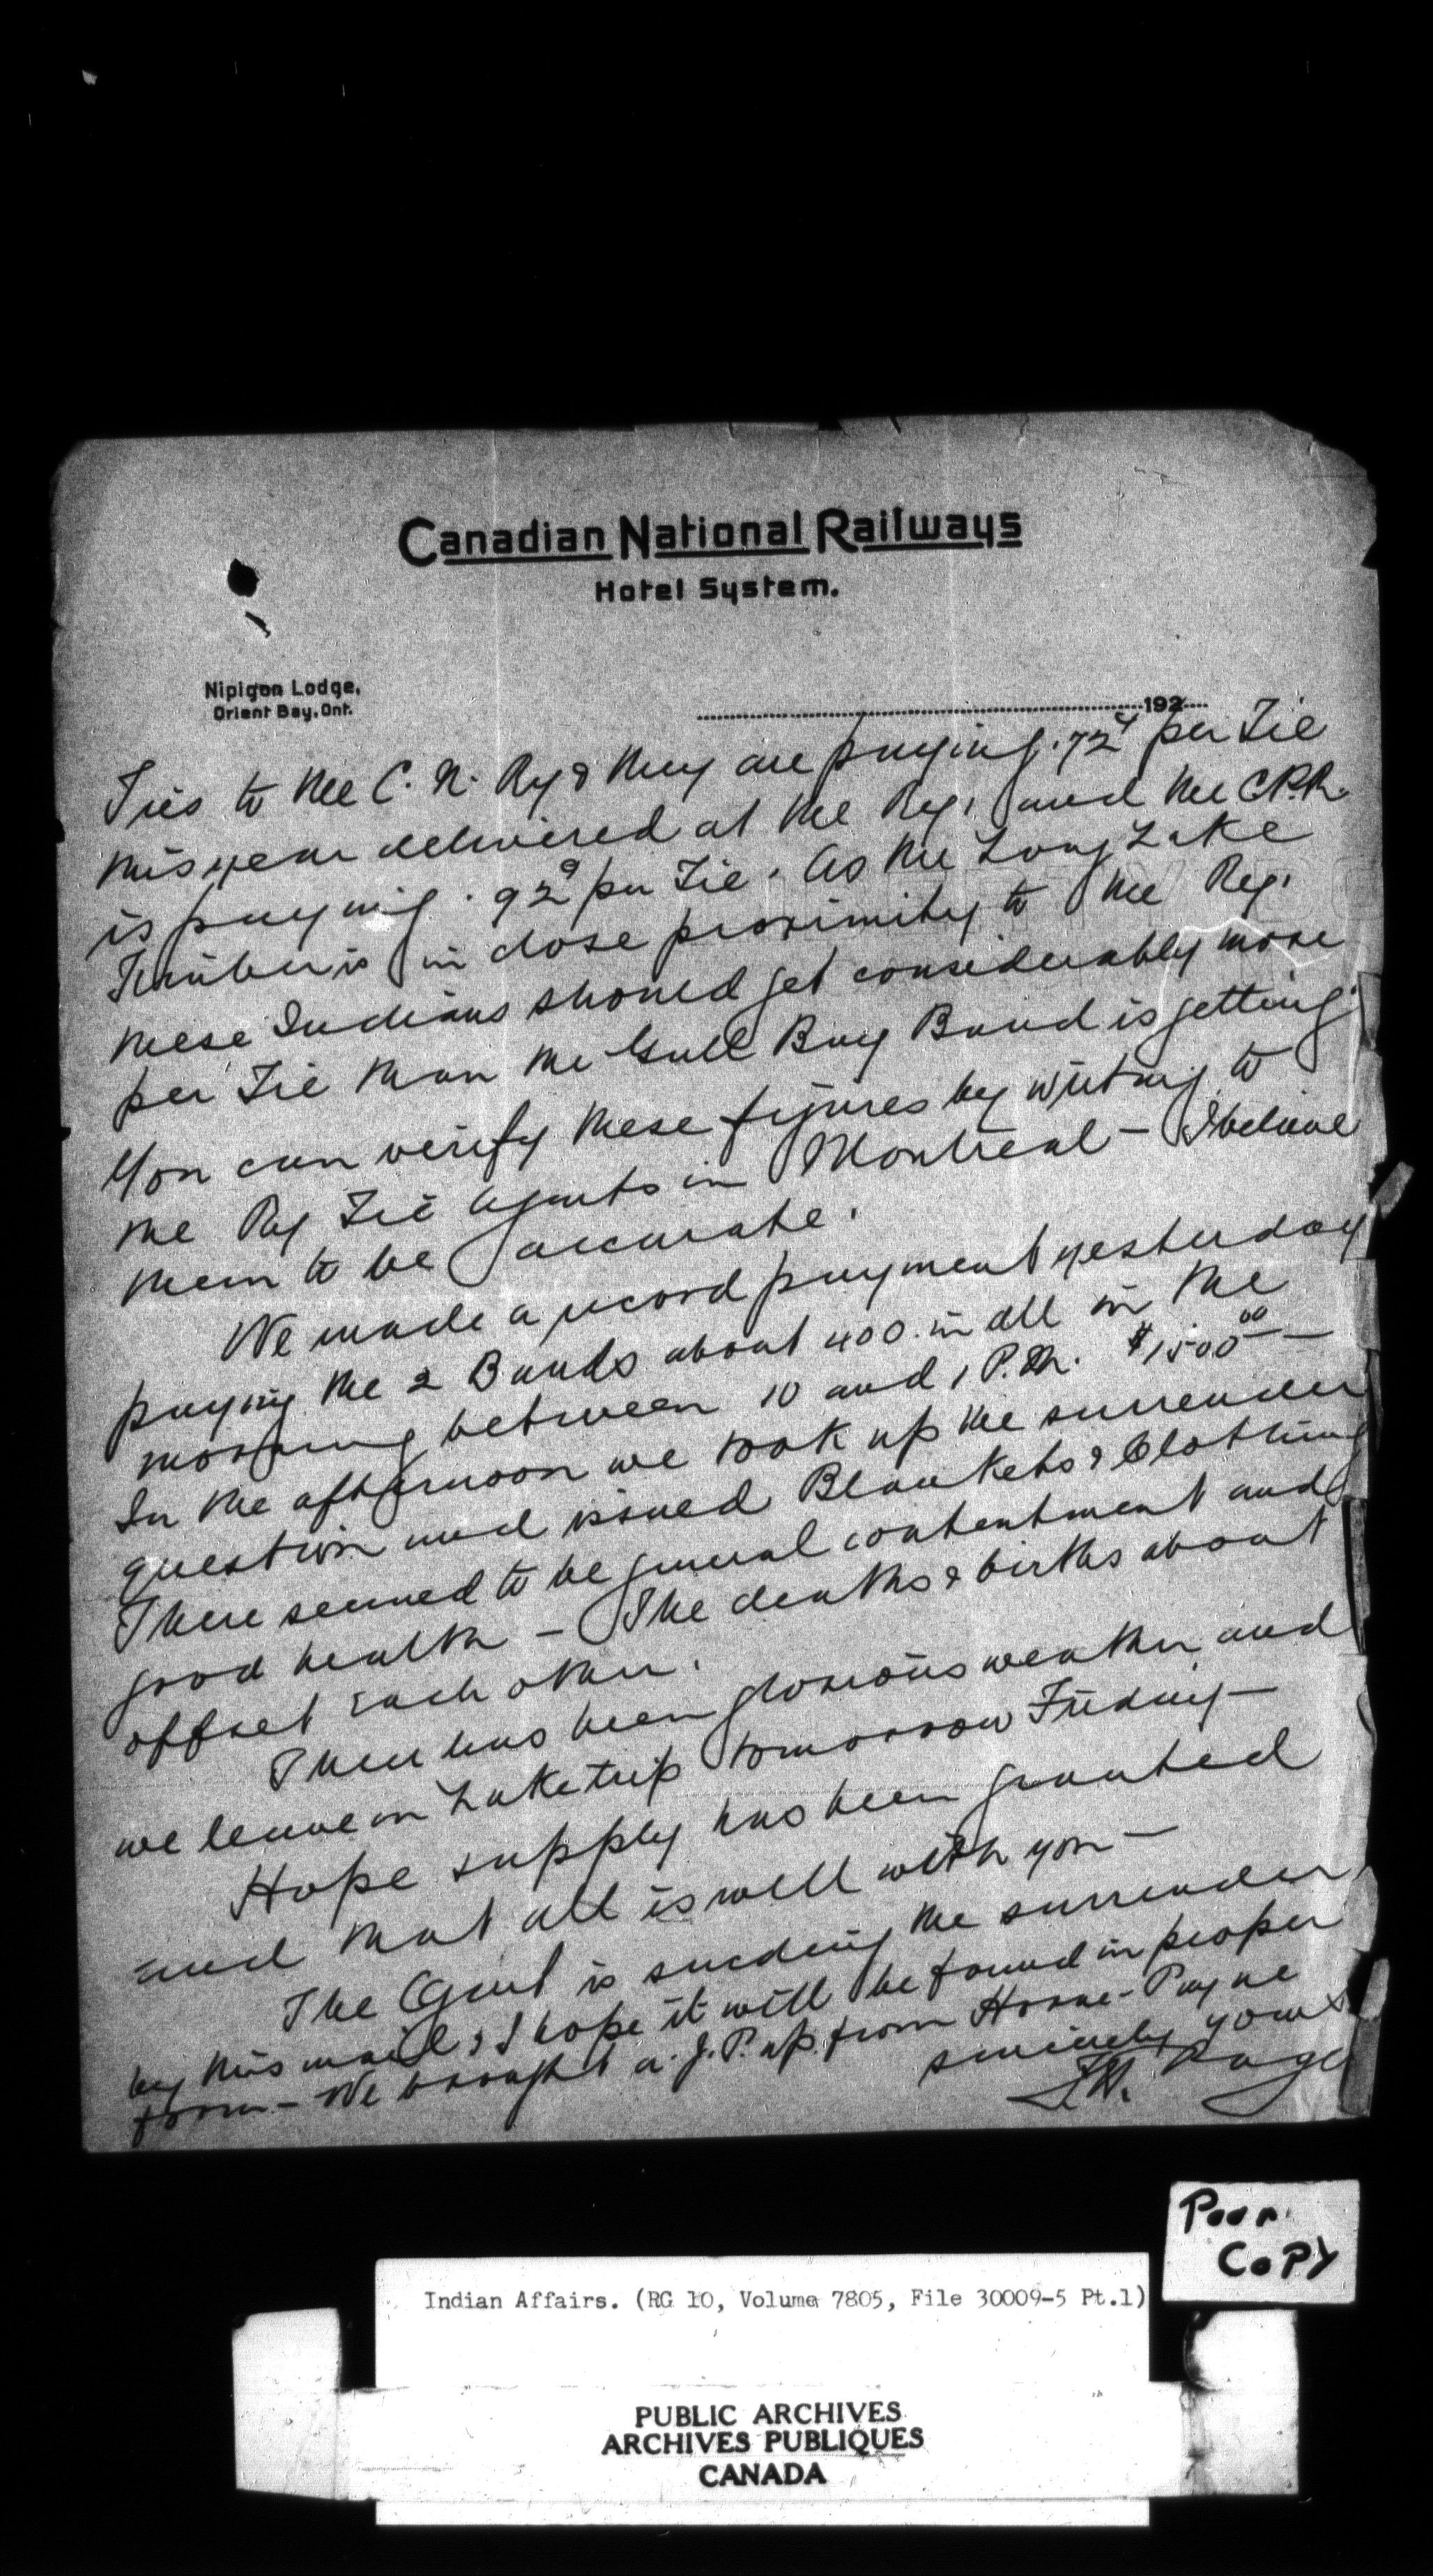 Canadian National Railways
Hotel System.
Nipigon Lodge,
Orient Bay, Ont.
192
Ties to the C. N. Ry & they are paying .72¢ per Tie
this year delivered at the Ry. and the C.P.R.
is paying .92 per Tie. As the Long Lake
Timber is in close proximity to the Ry.
these Indians should get considerably more
per Tie than the Gull Bay Band is getting.
You can verify these figures by writing to
the Ry Tie Agents in Montreal — I believe
them to be accurate.
We made a record payment yesterday
paying the 2 Bands about 400 in all in the
morning between 10 and 1 P.M. $1500 00 —
In the afternoon we took up the surrender
question and issued Blankets & Clothing
There seemed to be general contentment and
good health — The deaths & births about
offset each other.
There has been glorious weather and
we leave on Lake trip tomorrow Friday —
Hope supply has been granted
and that all is well with you —
The Agent is sending the surrender
by this mail & I hope it will be found in proper
form — We brought a J.P. up from Horne-Payne
sincerely yours
Page
Poor
COPY
Indian Affairs. (RG 10, Volume 7805, File 30009-5 Pt.1)
PUBLIC ARCHIVES
ARCHIVES PUBLIQUES
CANADA